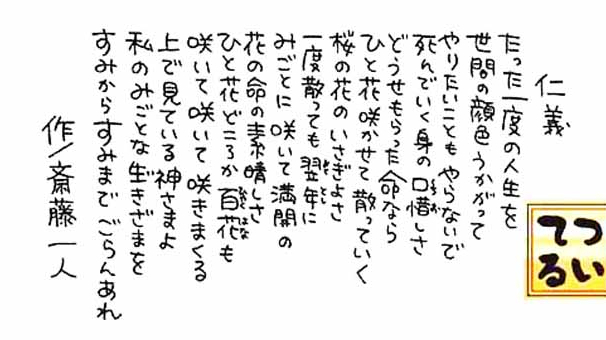 仁義
たった一度の人生を
世間の顔色うかがって
やりたいことも やらないで
死んでいく身の 口惜しさ
どうせもらった命なら
ひと花 咲かせて 散っていく
桜の花の いさぎよさ
一度散っても 翌年に
みごとに 咲いて 満開の
花の命の 素晴しさ
ひと花どころか 百花も
咲いて 咲いて 咲きまくる
上で見ている 神さまよ
私のみごとな 生きざまを
すみから すみまで ごらんあれ
作/斎藤一人
ついてる